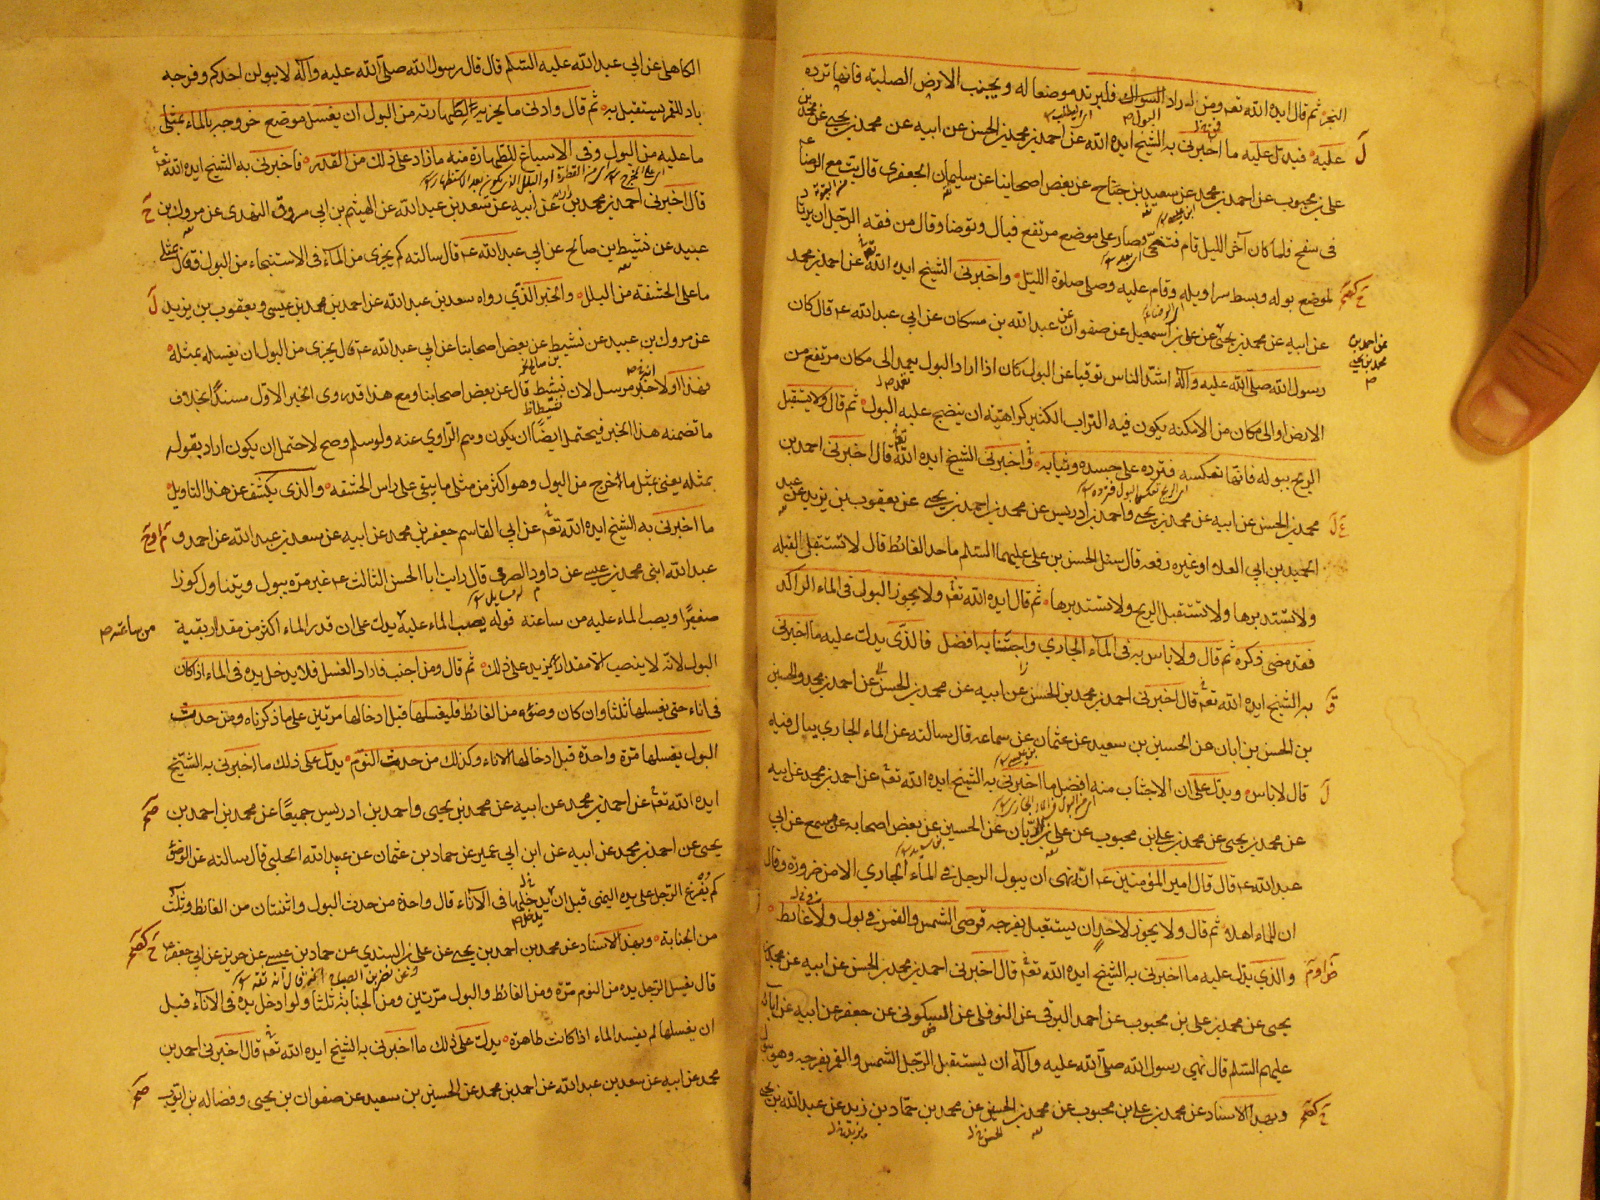 البحر ثم قال ايده الله تعم ومن اراد البول فليرتد موضعا له ويجتنب الارض الصلبة فانها ترده
عليه فيدل عليه ما اخبرني به الشيخ ايده الله عن احمد بن محمد بن الحسن عن ابيه عن محمد بن يحيى عن محمد بن
علي بن محبوب عن احمد بن محمد عن سعيد بن جناح عن بعض اصحابنا عن سليمان الجعفري قال بت مع الرضا
في سفح فلما كان آخر الليل قام فتنحى وصار على موضع مرتفع فبال وتوضا وقال من فقه الرجل ان يرتاد
لموضع بوله وبسط سراويله وقام عليه وصلى صلوة الليل واخبرني الشيخ ايده الله تعم عن احمد بن محمد
عن ابيه عن محمد بن يحيى عن علي بن اسمعيل عن صفوان عن عبد الله بن مسكان عن ابي عبد الله ع قال كان
عن احمد بن محمد بن يحيى
رسول الله صلى الله عليه وآله اشد الناس توقيا عن البول كان اذا اراد البول يعمد الى مكان مرتفع من
الارض او الى مكان من الامكنة يكون فيه التراب الكثير كراهية ان ينضح عليه البول ثم قال ولا يستقبل
الريح ببوله فانها تعكسه فترده على جسده وثيابه واخبرني الشيخ ايده الله تعم قال اخبرني احمد بن
محمد بن الحسن عن ابيه عن محمد بن يحيى واحمد بن ادريس عن محمد بن احمد بن يحيى عن يعقوب بن يزيد عن عبد
الحميد بن ابي العلاء او غيره رفعه قال سئل الحسن بن علي عليهما السلم ما حد الغائط قال لا تستقبل القبلة
ولا تستدبرها ولا تستقبل الريح ولا تستدبرها ثم قال ايده الله تعم ولا يجوز البول في الماء الراكد
فقد مضى ذكره ثم قال ولا باس به في الماء الجاري واجتنابه افضل فالذي يدل عليه ما اخبرني
به الشيخ ايده الله تعم قال اخبرني احمد بن محمد بن الحسن عن ابيه عن محمد بن الحسن عن احمد بن محمد والحسين
بن الحسن بن ابان عن الحسين بن سعيد عن عثمان عن سماعه قال سالته عن الماء الجاري يبال فيه
قال لا باس ويدل على ان الاجتناب منه افضل ما اخبرني به الشيخ ايده الله تعم عن احمد بن محمد عن ابيه
عن محمد بن يحيى عن محمد بن علي بن محبوب عن علي بن الريان عن الحسين عن بعض اصحابه عن مسمع عن ابي
عبد الله ع قال قال امير المؤمنين ع انه نهى ان يبول الرجل في الماء الجاري الا من ضرورة وقال
ان للماء اهلا ثم قال ولا يجوز لاحد ان يستقبل بفرجه قرصي الشمس والقمر في بول ولا غائط
والذي يدل عليه ما اخبرني به الشيخ ايده الله تعم قال اخبرني احمد بن محمد بن الحسن عن ابيه عن محمد بن
يحيى عن محمد بن علي بن محبوب عن احمد البرقي عن النوفلي عن السكوني عن جعفر عن ابيه عن آبائه
عليهم السلم قال نهى رسول الله صلى الله عليه وآله ان يستقبل الرجل الشمس والقمر بفرجه وهو يبول
وبهذا الاسناد عن محمد بن علي بن محبوب عن محمد بن الحسين عن محمد بن حماد بن زيد عن عبد الله بن يحيى
الكاهلي عن ابي عبد الله عليه السلم قال قال رسول الله صلى الله عليه وآله لا يبولن احدكم وفرجه
باد للقمر يستقبل به ثم قال وادنى ما يجزيه لطهارته من البول ان يغسل موضع خروجه بالماء بمثلي
ما عليه من البول وفي الاسباغ للطهارة منه ما زاد على ذلك من القدر فاخبرني به الشيخ ايده الله تعم
قال اخبرني احمد بن محمد عن ابيه عن سعد بن عبد الله عن الهيثم بن ابي مسروق النهدي عن مروك بن
عبيد عن نشيط بن صالح عن ابي عبد الله ع قال سالته كم يجزى من الماء في الاستنجاء من البول فقال بمثلي
ما على الحشفة من البلل والخبر الذي رواه سعد بن عبد الله عن احمد بن محمد بن عيسى ويعقوب بن يزيد
عن مروك بن عبيد عن نشيط عن بعض اصحابنا عن ابي عبد الله ع قال يجزى من البول ان يغسله بمثله
فهذا اولا خبر مرسل لان نشيط قال عن بعض اصحابنا ومع هذا قد روى الخبر الاول مسندا بخلاف
ما تضمنه هذا الخبر فيحتمل ايضا ان يكون وهم الراوي عنه ولو سلم وصح لاحتمل ان يكون اراد بقوله
بمثله يعني بمثل ما خرج من البول وهو اكثر من مثلي ما يبقى على راس الحشفة والذي يكشف عن هذا التاويل
ما اخبرني به الشيخ ايده الله تعم عن ابي القاسم جعفر بن محمد عن ابيه عن سعد بن عبد الله عن احمد و
عبد الله ابنى محمد بن عيسى عن داود الصرمي قال رايت ابا الحسن الثالث ع غير مرة يبول ويتناول كوزا
صغيرا ويصب الماء عليه من ساعته قوله يصب الماء عليه يدل على ان قدر الماء اكثر من مقدار بقية
من ساعته
البول لانه لا ينصب الا مقدار يزيد على ذلك ثم قال ومن اجنب فاراد الغسل فلا يدخل يده في الماء اذا كان
في اناء حتى يغسلها ثلثا وان كان وضوءه من الغائط فليغسلها قبل ادخالها مرتين على ما ذكرناه ومن حدث
البول يغسلها مرة واحدة قبل ادخالها الاناء وكذلك من حدث النوم يدل على ذلك ما اخبرني به الشيخ
ايده الله تعم عن احمد بن محمد عن ابيه عن محمد بن يحيى واحمد بن ادريس جميعا عن محمد بن احمد بن
يحيى عن احمد بن محمد عن ابيه عن ابن ابي عمير عن حماد بن عثمان عن عبيد الله الحلبي قال سالته عن الوضوء
كم يفرغ الرجل على يده اليمنى قبل ان يدخلها في الآناء قال واحدة من حدث البول واثنتان من الغائط وثلث
من الجنابة وبهذا الاسناد عن محمد بن احمد بن يحيى عن علي بن السندي عن حماد بن عيسى عن حريز عن ابي جعفر ع
قال يغسل الرجل يده من النوم مرة ومن الغائط والبول مرتين ومن الجنابة ثلثا ولو ادخل يده في الاناء قبل
ان يغسلها لم يفسد الماء اذا كانت طاهرة يدل على ذلك ما اخبرني به الشيخ ايده الله تعم قال اخبرني احمد بن
محمد عن ابيه عن سعد بن عبد الله عن احمد بن محمد عن الحسين بن سعيد عن صفوان بن يحيى وفضاله بن ايوب